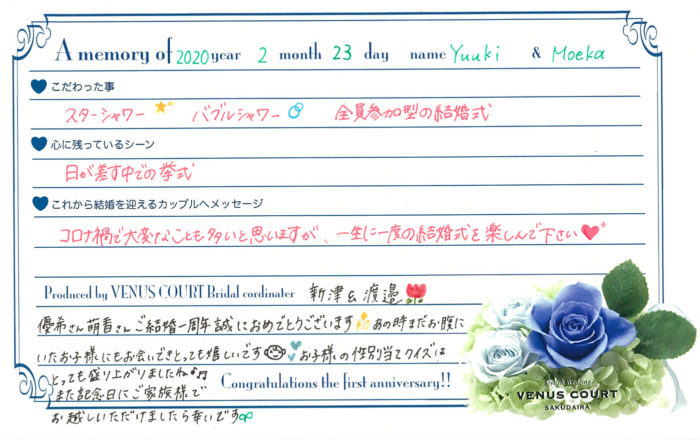 A memory of 2020 year 2 month 23 day name Yuuki & Moeka
こだわった事
スターシャワー バブルシャワー 全員参加型の結婚式
心に残っているシーン
日が差す中での挙式
これから結婚を迎えるカップルへメッセージ
コロナ禍で大変なことも多いと思いますが、一生に一度の結婚式を楽しんで下さい
Produced by VENUS COURT Bridal cordinater 新津&渡邉
優希さん萌香さんご結婚一周年誠におめでとうございます あの時まだお腹に
いたお子様にもお会いできとっても嬉しいです お子様の性別当てクイズは
とっても盛り上がりましたね♪
また記念日にご家族様で
お越しいただけましたら幸いです
Congratulations the first anniversary!!
VENUS COURT
SAKUDAIRA